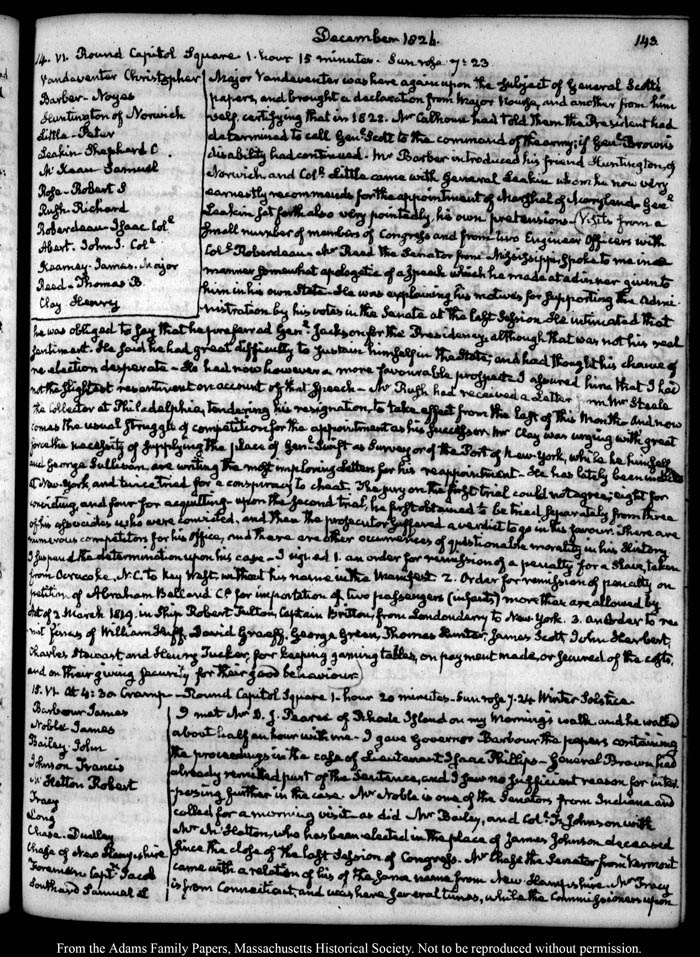 December 1826.
143
14. VI. Round Capitol Square 1. hour 15 minutes. Sun rose 7:23
Vandeventer Christopher
Barber - Noyes
Huntington of Norwich
Little - Peter
Leakin Shephard C.
McKean Samuel
Rose - Robert S
Rush Richard
Roberdeau - Isaac Colo.
Abert. John J. Colo.
Kearney. James. Major
Reed - Thomas B.
Clay Henry
Major Vandeventer was here again upon the subject of General Scott's
papers, and brought a declaration from Major Nourse, and another from him
self, certifying that in 1822. Mr Calhoun had told them the President had
determined to call Genl. Scott to the command of the army; if Genl. Brown's
disability had continued. Mr Barber introduced his friend Huntington, of
Norwich, and Colo. Little came with General Leakin whom he now very
earnestly recommends for the appointment of Marshal of Maryland. Genl.
Leakin set forth also very pointedly, his own pretensions. (Visits from a
small number of members of Congress and from two Engineer Officers with
Colo. Roberdeau. Mr Reed the Senator from Mississippi, spoke to me in a
manner somewhat apologetic of a speech which he made at a dinner given to
him in his own State. He was explaining his motives for supporting the Admi-
nistration by his votes in the Senate at the last Session. He intimated that
he was obliged to say that he preferred Genl. Jackson for the Presidency, although that was not his real
sentiment. He said he had great difficulty to sustain himself in the State, and had thought his chance of
re-election desperate - He had now however a more favourable prospect. I assured him that I had
not the slightest resentment on account of that Speech - Mr Rush had received a Letter from Mr Steele
the Collector at Philadelphia, tendering his resignation, to take effect from the last of this Month - and now
comes the usual struggle of competition for the appointment as his Successor. Mr Clay was urging with great
force the necessity of supplying the place of Genl. Swift as Surveyor of the Port of New-York, while he himself
and George Sullivan, are writing the most imploring letters for his reappointment - He has lately been
at New-York, and twice tried for a conspiracy to cheat. The jury on the first trial could not agree; eight for
convicting, and four for acquitting - upon the second trial, he first obtained to be tried separately from three
of his associates who were convicted, and then the prosecutor suffered a verdict to go in his favour. There are
numerous competitors for his office, and there are other occurrences of questionable morality in his History
I suspend the determination upon his case - I signed 1. an order for remission of a penalty for a Slave, taken
from Ocracoke, N.C. to Key West. without his name in the Manifest. 2. Order for remission of penalty on
petition of Abraham Bellard Co for importation of two passengers (infants) more than are allowed by
Act of 2 March 1819. in Ship Robert Fulton, Captain Britton, from Londonderry to New-York. 3. an Order to re-
mit fines of William Huff, David Graeff, George Green, Thomas Hunter, James Scott, John Harbert,
Charles Stewart, and Henry Tucker, for keeping gaming tables, on payment made, or secured of the costs,
and on their giving security for their good behaviour.)
15. VI. At 4:30 Cramp - Round Capitol Square 1-hour 20 minutes - Sun rose 7.24 Winter Solstice
Barbour James
Noble James
Bailey. John
Johnson Francis
McHatton Robert
Tracy
Long
Chase. Dudley
Chase of New Hampshire
Foreman Capt. Jacob
Southard Samuel L
I met Mr D. J. Pearce of Rhode Island on my Morning's walk and he walked
about half an hour with me - I gave Governor Barbour the papers containing
the proceedings in the case of Lieutenant Isaac Phillips - General Brown had
already remitted part of the Sentence, and I saw no sufficient reason for inter-
posing further in the case. Mr Noble is one of the Senators from Indiana and
called for a morning visit - as did Mr Bailey, and Colo. F. Johnson with
Mr McHatton, who has been elected in the place of James Johnson deceased
since the close of the last Session of Congress. Mr Chase the Senator from Vermont
came with a relation of his of the same name from New Hampshire. Mr Tracy
is from Connecticut, and was here several times, while the Commissioners upon
From the Adams Family Papers, Massachusetts Historical Society. Not to be reproduced without permission.